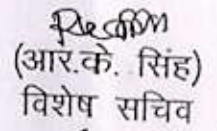 (आर.के. सिंह)
विशेष सचिव